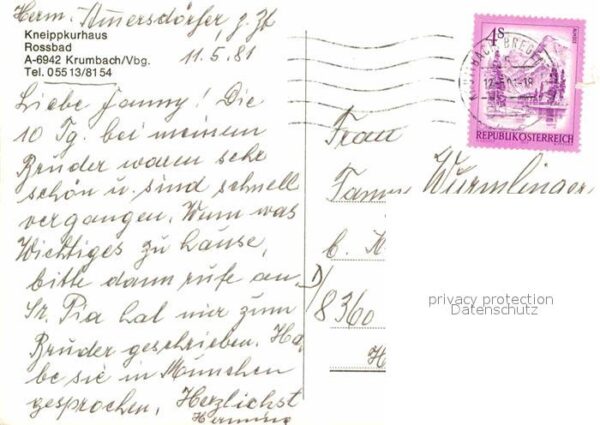 Herm. Auersdörfer, z. Zt
Kneippkurhaus
Rossbad
A-6942 Krumbach/Vbg.
Tel. 05513/8154
11.5.81
Liebe Fanny! Die
10 Tg. bei meinem
Bruder waren sehr
schön u. sind schnell
vergangen. Wenn was
Wichtiges zu hause,
bitte dann rufe an.
Sr. Pia hat mir zum
Bruder geschrieben. Ha
be sie in München
gesprochen. Herzlichst
Hermine
4S
REPUBLIK ÖSTERREICH
Frau
Wurmlinger
b.
D/
8360
privacy protection
Datenschutz